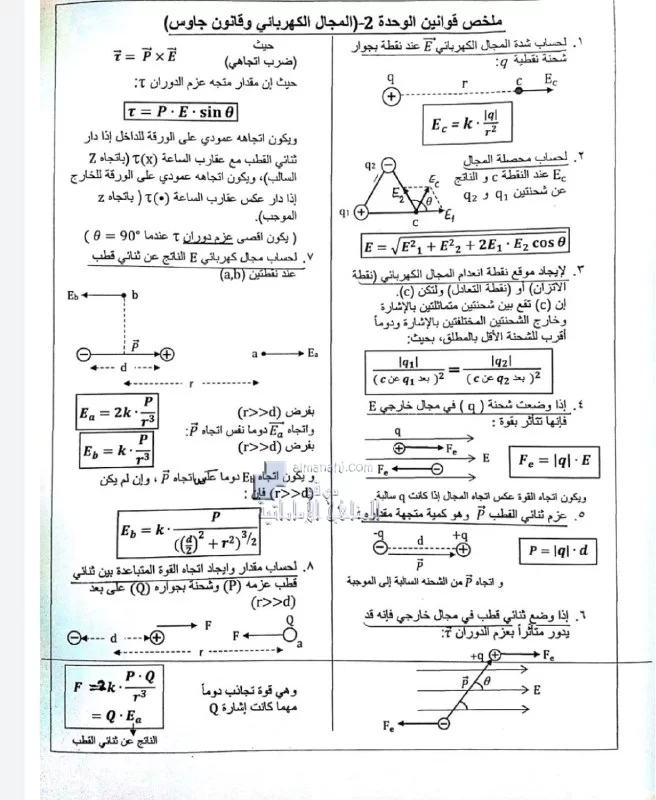 ملخص قوانين الوحدة 2-(المجال الكهربائي وقانون جاوس)
١. لحساب شدة المجال الكهربائي E⃗ عند نقطة بجوار
شحنة نقطية q:
q r c E_c
E_c = k · |q| / r²
٢. لحساب محصلة المجال
E_c عند النقطة c و الناتج
عن شحنتين q₁ و q₂
q₂ E₂ E_c θ
q₁ c E₁
E = √(E²₁ + E²₂ + 2E₁ · E₂ cos θ)
٣. لإيجاد موقع نقطة انعدام المجال الكهربائي (نقطة
الاتزان) أو (نقطة التعادل) ولتكن (c).
إن (c) تقع بين شحنتين متماثلتين بالإشارة
وخارج الشحنتين المختلفتين بالإشارة ودوماً
أقرب للشحنة الأقل بالمطلق، بحيث:
|q₁| / (بعد q₁ عن c)² = |q₂| / (بعد q₂ عن c)²
٤. إذا وضعت شحنة ( q ) في مجال خارجي E
فإنها تتأثر بقوة :
q
F_e
E
F_e
F_e = |q| · E
ويكون اتجاه القوة عكس اتجاه المجال إذا كانت q سالبة.
٥. عزم ثنائي القطب P⃗ وهو كمية متجهة مقداره
-q d +q
P⃗
P = |q| · d
و اتجاه P⃗ من الشحنه السالبة إلى الموجبة
٦. إذا وضع ثنائي قطب في مجال خارجي فإنه قد
يدور متأثراً بعزم الدوران τ⃗:
+q F_e
P⃗ θ E
F_e
حيث τ⃗ = P⃗ × E⃗
(ضرب اتجاهي)
حيث إن مقدار متجه عزم الدوران τ:
τ = P · E · sin θ
ويكون اتجاهه عمودي على الورقة للداخل إذا دار
ثنائي القطب مع عقارب الساعة τ(x) (باتجاه Z
السالب)، ويكون اتجاهه عمودي على الورقة للخارج
إذا دار عكس عقارب الساعة τ(•) ( باتجاه z
الموجب).
( يكون اقصى عزم دوران τ عندما θ = 90° )
٧. لحساب مجال كهربائي E الناتج عن ثنائي قطب
عند نقطتين (a,b)
E_b b
P⃗ a E_a
d
r
E_a = 2k · P / r³
بفرض (r>>d)
واتجاه E_a⃗ دوما نفس اتجاه P⃗:
E_b = k · P / r³
بفرض (r>>d)
و يكون اتجاه E_b دوما عكس اتجاه P⃗ ، وإن لم يكن
(r>>d) فإن :
almanahj.com
المناهج الإماراتية
E_b = k · P / ((d/2)² + r²)^3/2
٨. لحساب مقدار وايجاد اتجاه القوة المتباعدة بين ثنائي
قطب عزمه (P) وشحنة بجواره (Q) على بعد
(r>>d)
d F F Q a
r
F = 2k · P · Q / r³
= Q · E_a
وهي قوة تجاذب دوماً
مهما كانت إشارة Q
الناتج عن ثنائي القطب